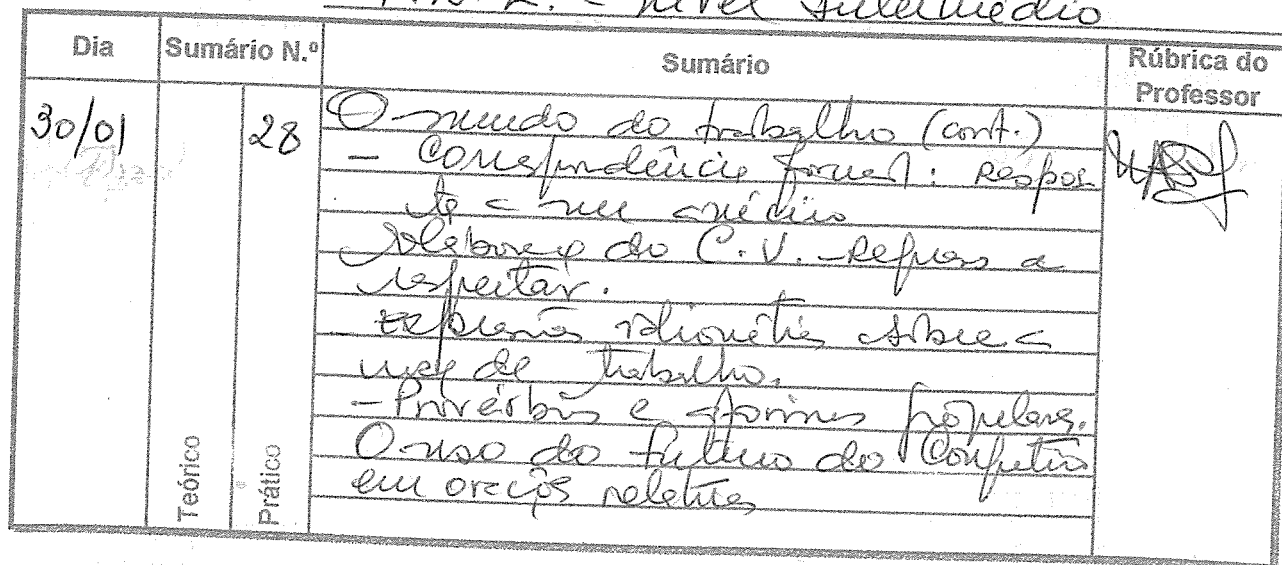 L. - Nível Intermédio
Dia Sumário N.º Sumário Rúbrica do Professor
30/01 28 O mundo do trabalho (cont.)
- Correspondência formal: Respos-
ta a um anúncio
Elaboração do C.V. - Regras a
respeitar.
Expressões idiomáticas sobre a
de trabalho.
- Provérbios e aforismos populares.
O uso do futuro do Conjuntivo
em orações relativas
Teórico
Prático